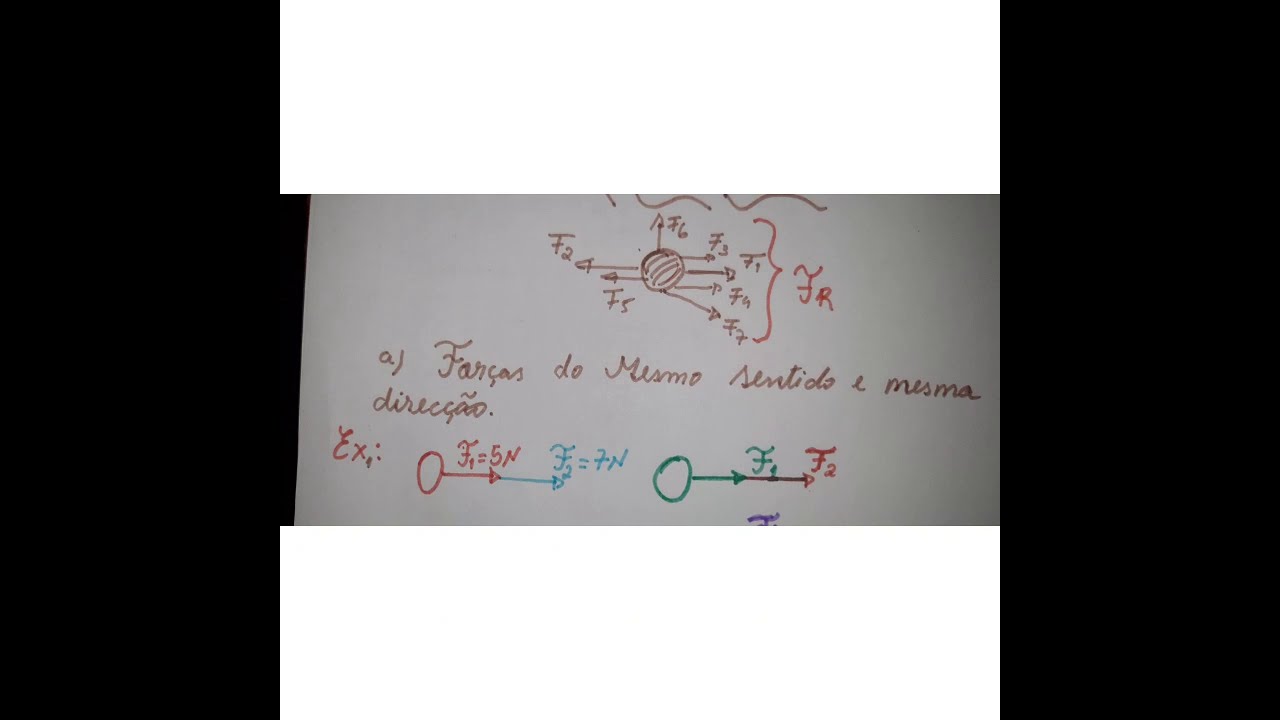 F6
F2 F3 F1
F5 F4 FR
F7
a) Forças do Mesmo sentido e mesma
direcção.
Ex1: F1=5N F2=7N F1 F2